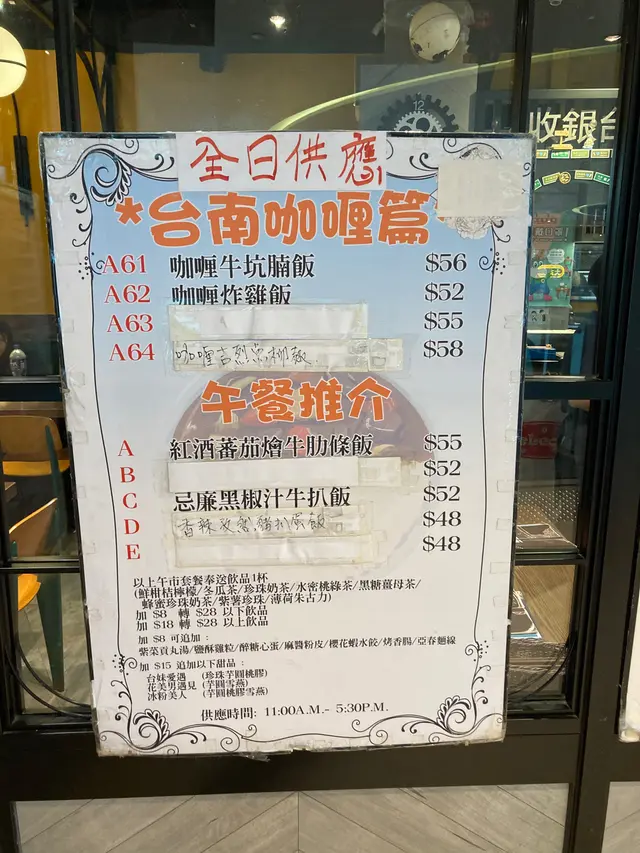 收銀台
全日供應
*台南咖喱篇*
A61 咖喱牛坑腩飯 $56
A62 咖喱炸雞飯 $52
A63 $55
A64 咖喱吉列魚柳飯 $58
午餐推介
A 紅酒蕃茄燴牛肋條飯 $55
B $52
C 忌廉黑椒汁牛扒飯 $52
D 香辣孜然豬扒蛋飯 $48
E $48
以上午市套餐奉送飲品1杯
(鮮柑桔檸檬/冬瓜茶/珍珠奶茶/水密桃綠茶/黑糖薑母茶/
蜂蜜珍珠奶茶/紫薯珍珠/薄荷朱古力)
加 $8 轉 $28 以下飲品
加 $18 轉 $28 以上飲品
加 $8 可追加 :
紫菜貢丸湯/鹽酥雞粒/醉糖心蛋/麻醬粉皮/櫻花蝦水餃/烤香腸/亞春麵線
加 $15 追加以下甜品 :
台妹愛遇 (珍珠芋圓桃膠)
花美男遇見 (芋圓雪燕)
冰粉美人 (芋圓桃膠雪燕)
供應時間: 11:00A.M.- 5:30P.M.